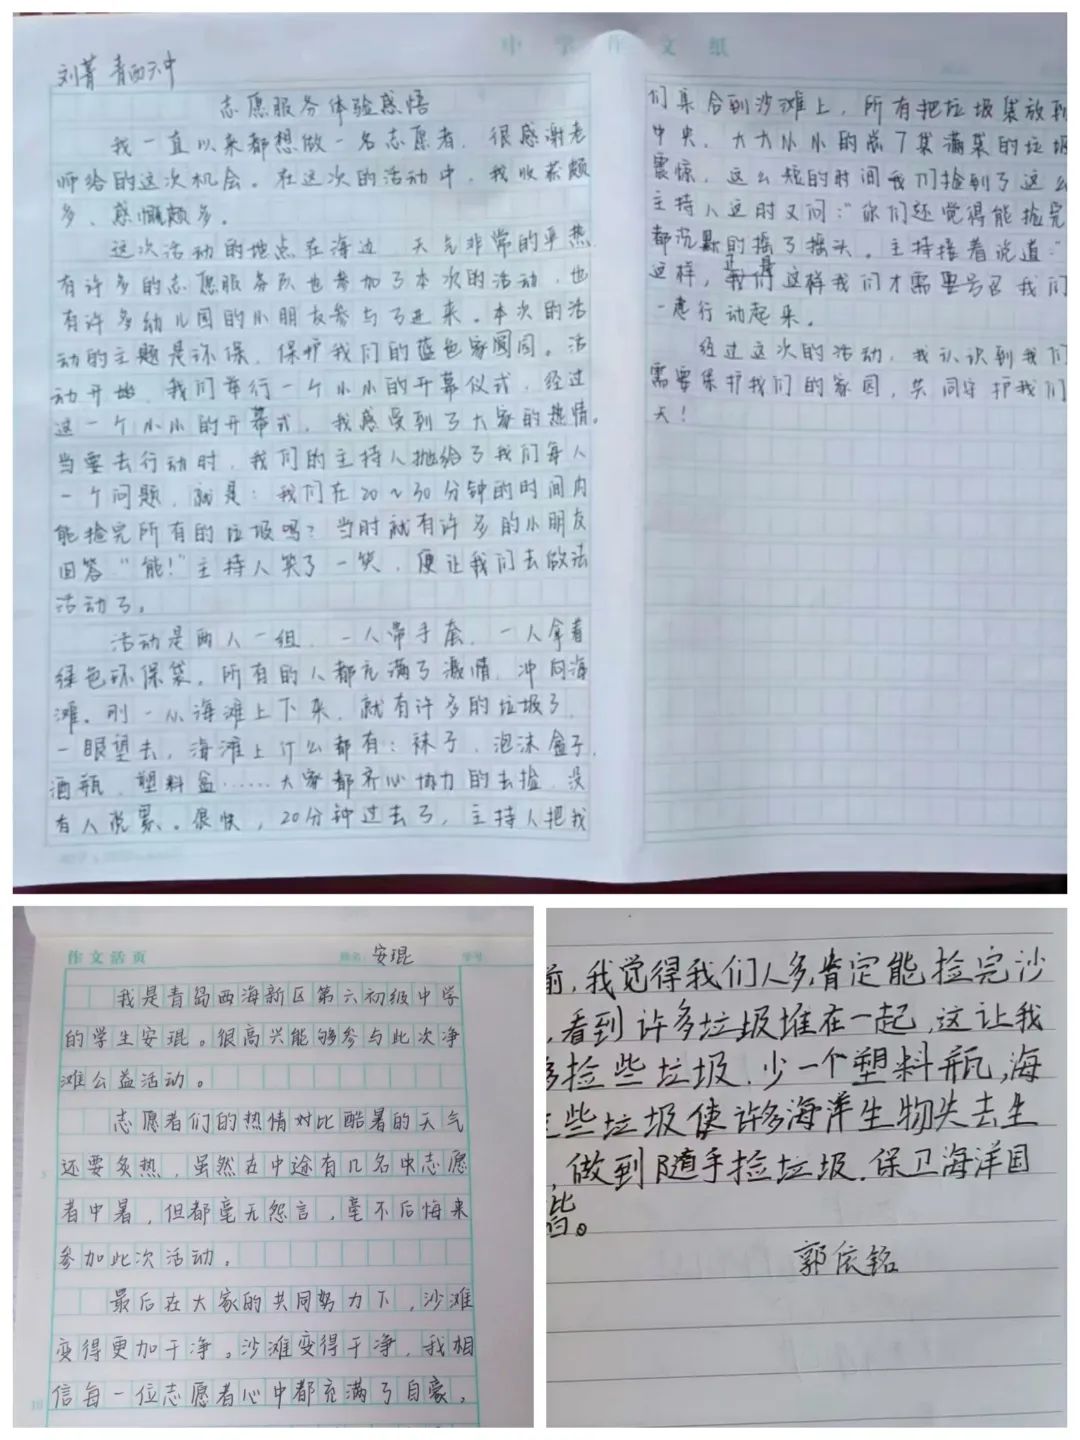 中学作文纸
刘菁 青西六中
志愿服务体验感悟
我一直以来都想做一名志愿者，很感谢老
师给的这次机会。在这次的活动中，我收获颇
多、感慨颇多。
这次活动的地点在海边，天气非常的炎热
有许多的志愿服务队也参加了本次的活动，也
有许多幼儿园的小朋友参与了进来。本次的活
动的主题是环保，保护我们的蓝色家园。活
动开始，我们举行一个小小的开幕仪式，经过
这一个小小的开幕式，我感受到了大家的热情。
当要去行动时，我们的主持人抛给了我们每人
一个问题，就是：我们在20~30分钟的时间内
能捡完所有的垃圾吗？当时就有许多的小朋友
回答“能！”主持人笑了一笑，便让我们去做
活动了。
活动是两人一组，一人带手套，一人拿着
绿色环保袋。所有的人都充满了激情，冲向海
滩。刚一从海滩上下来，就有许多的垃圾了，
一眼望去，海滩上什么都有：袜子，泡沫盒子，
酒瓶，塑料盒……大家都齐心协力的去捡，没
有人说累。很快，20分钟过去了，主持人把我
们集合到沙滩上，所有把垃圾袋放到
中央，大大小小的装了袋满袋的垃圾
震惊，这么短的时间我们捡到了这么
主持人这时又问：“你们还觉得能捡完
都沉默的摇了摇头。主持接着说道：“
这样，正是这样我们才需要号召我们
一起行动起来。
经过这次的活动，我认识到我们
需要保护我们的家园，共同守护我们
天！
作文活页 姓名：安琨 学号
我是青岛西海新区第六初级中学
的学生安琨。很高兴能够参与此次净
滩公益活动。
志愿者们的热情对比酷暑的天气
还要炙热，虽然在中途有几名中志愿
者中暑，但都毫无怨言，毫不后悔来
参加此次活动。
最后在大家的共同努力下，沙滩
变得更加干净。沙滩变得干净，我相
信每一位志愿者心中都充满了自豪，
前，我觉得我们人多，肯定能捡完沙
，看到许多垃圾堆在一起，这让我
多捡些垃圾，少一个塑料瓶，海
这些垃圾使许多海洋生物失去生
，做到随手捡垃圾，保卫海洋国
皆。
郭依铭